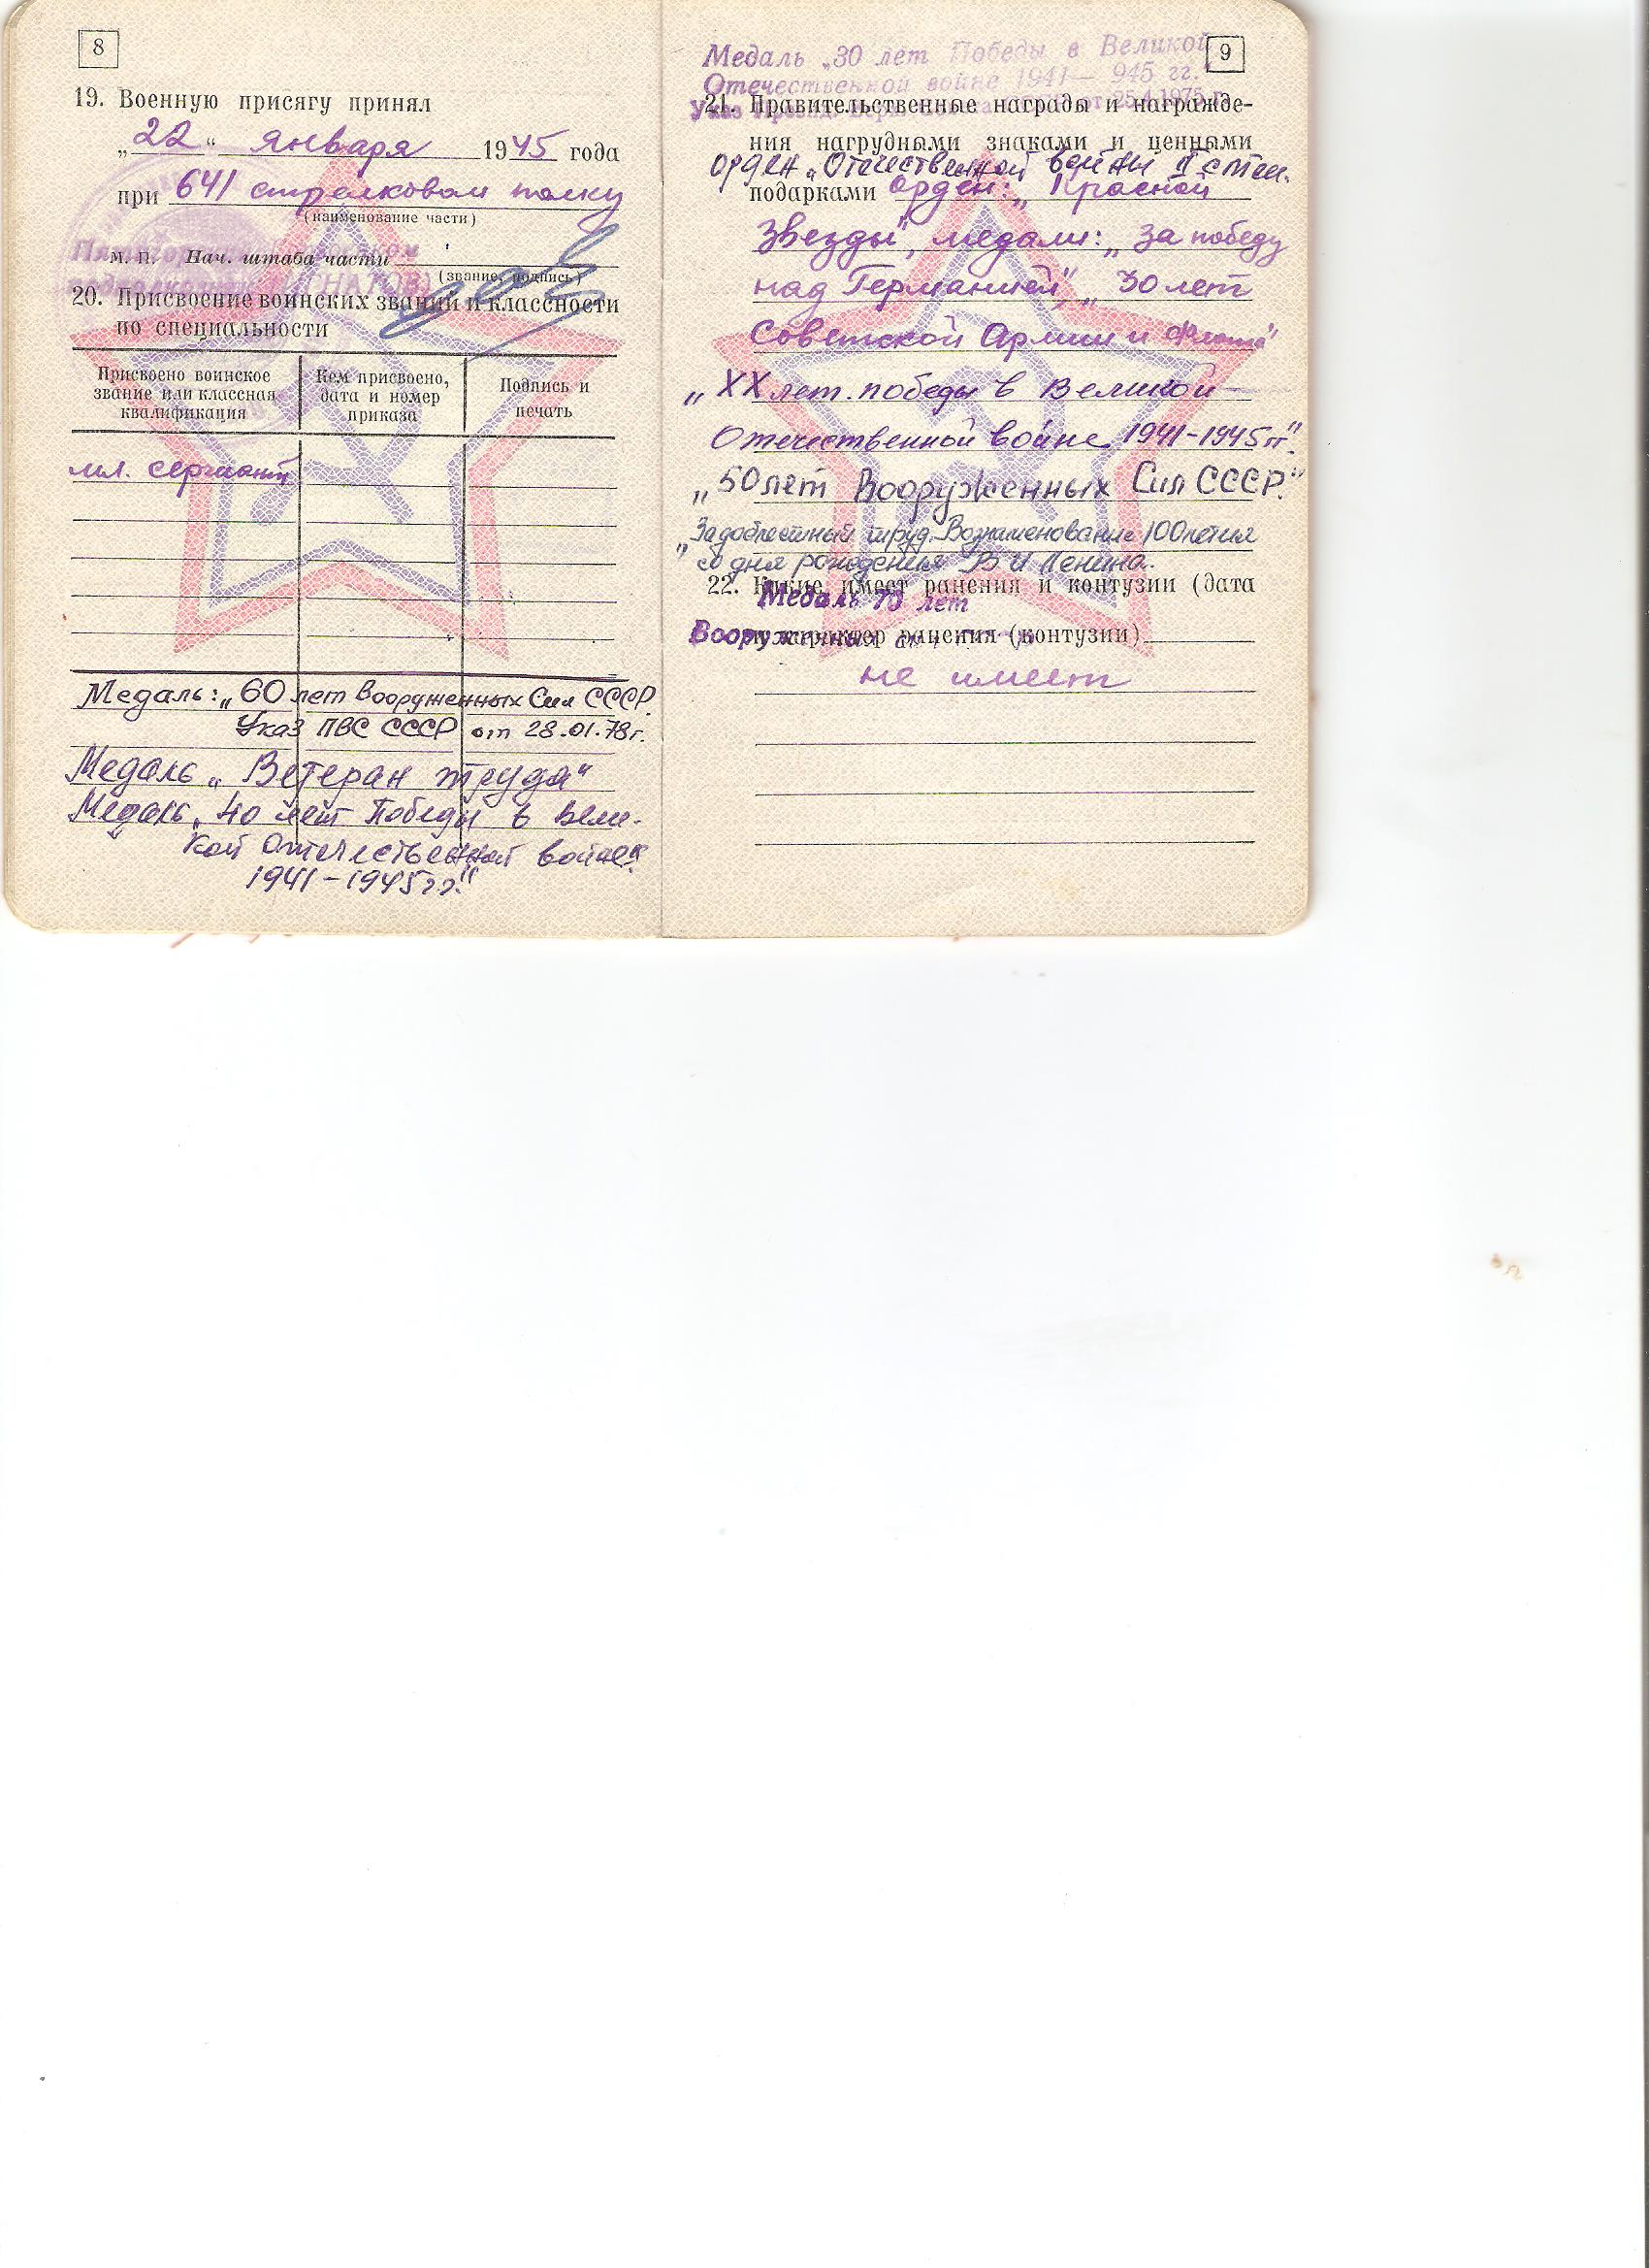 8
19. Военную присягу принял
„22“ января 1945 года
при 641 стрелковом полку
(наименование части)
м. п. Нач. штаба части
(звание, подпись)
20. Присвоение воинских званий и классности
по специальности
Присвоено воинское звание или классная квалификация
Кем присвоено, дата и номер приказа
Подпись и печать
мл. сержант
Медаль: „60 лет Вооруженных Сил СССР.
Указ ПВС СССР от 28.01.78г.
Медаль „Ветеран труда“
Медаль „40 лет Победы в Вели-
кой Отечественной войне
1941-1945гг.“
9
Медаль „30 лет Победы в Великой
Отечественной войне 1941— 945 гг.“
Указ от 25.4.1975 г.
21. Правительственные награды и награжде-
ния нагрудными знаками и ценными
орден „Отечественной войны II степ.
подарками орден: „Красной
Звезды“, медали: „За победу
над Германией“, „30 лет
Советской Армии и Флота“
„XX лет победы в Великой
Отечественной войне 1941-1945гг“.
„50 лет Вооруженных Сил СССР.“
„За доблестный труд. Вознаменование 100летия
со дня рождения В И Ленина.
22. Какие имеет ранения и контузии (дата
Медаль 70 лет
Вооруженных
и характер ранения (контузии)
не имеет